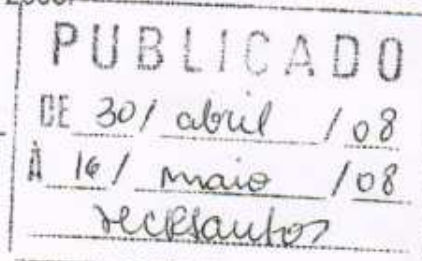 PUBLICADO
DE 30/ abril /08
À 16/ maio /08